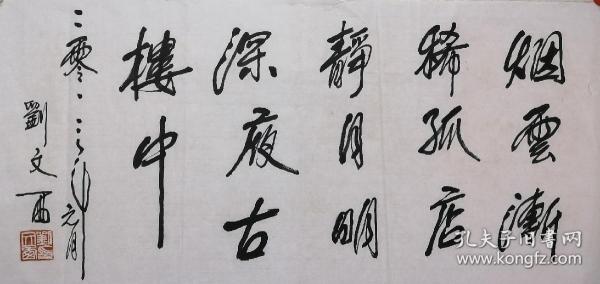 烟雲漸
稀孤店
靜月明
深夜古
樓中
二零一三年元月
劉文西
孔夫子旧书网
www.kongfz.com